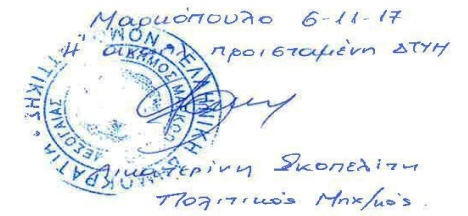 Μαρκόπουλο 6-11-17
Η προισταμένη ΔΤΥΗ
ΕΛΛΗΝΙΚΗ
Αικατερίνη Σκοπελίτη
Πολιτικός Μηχ/κός.